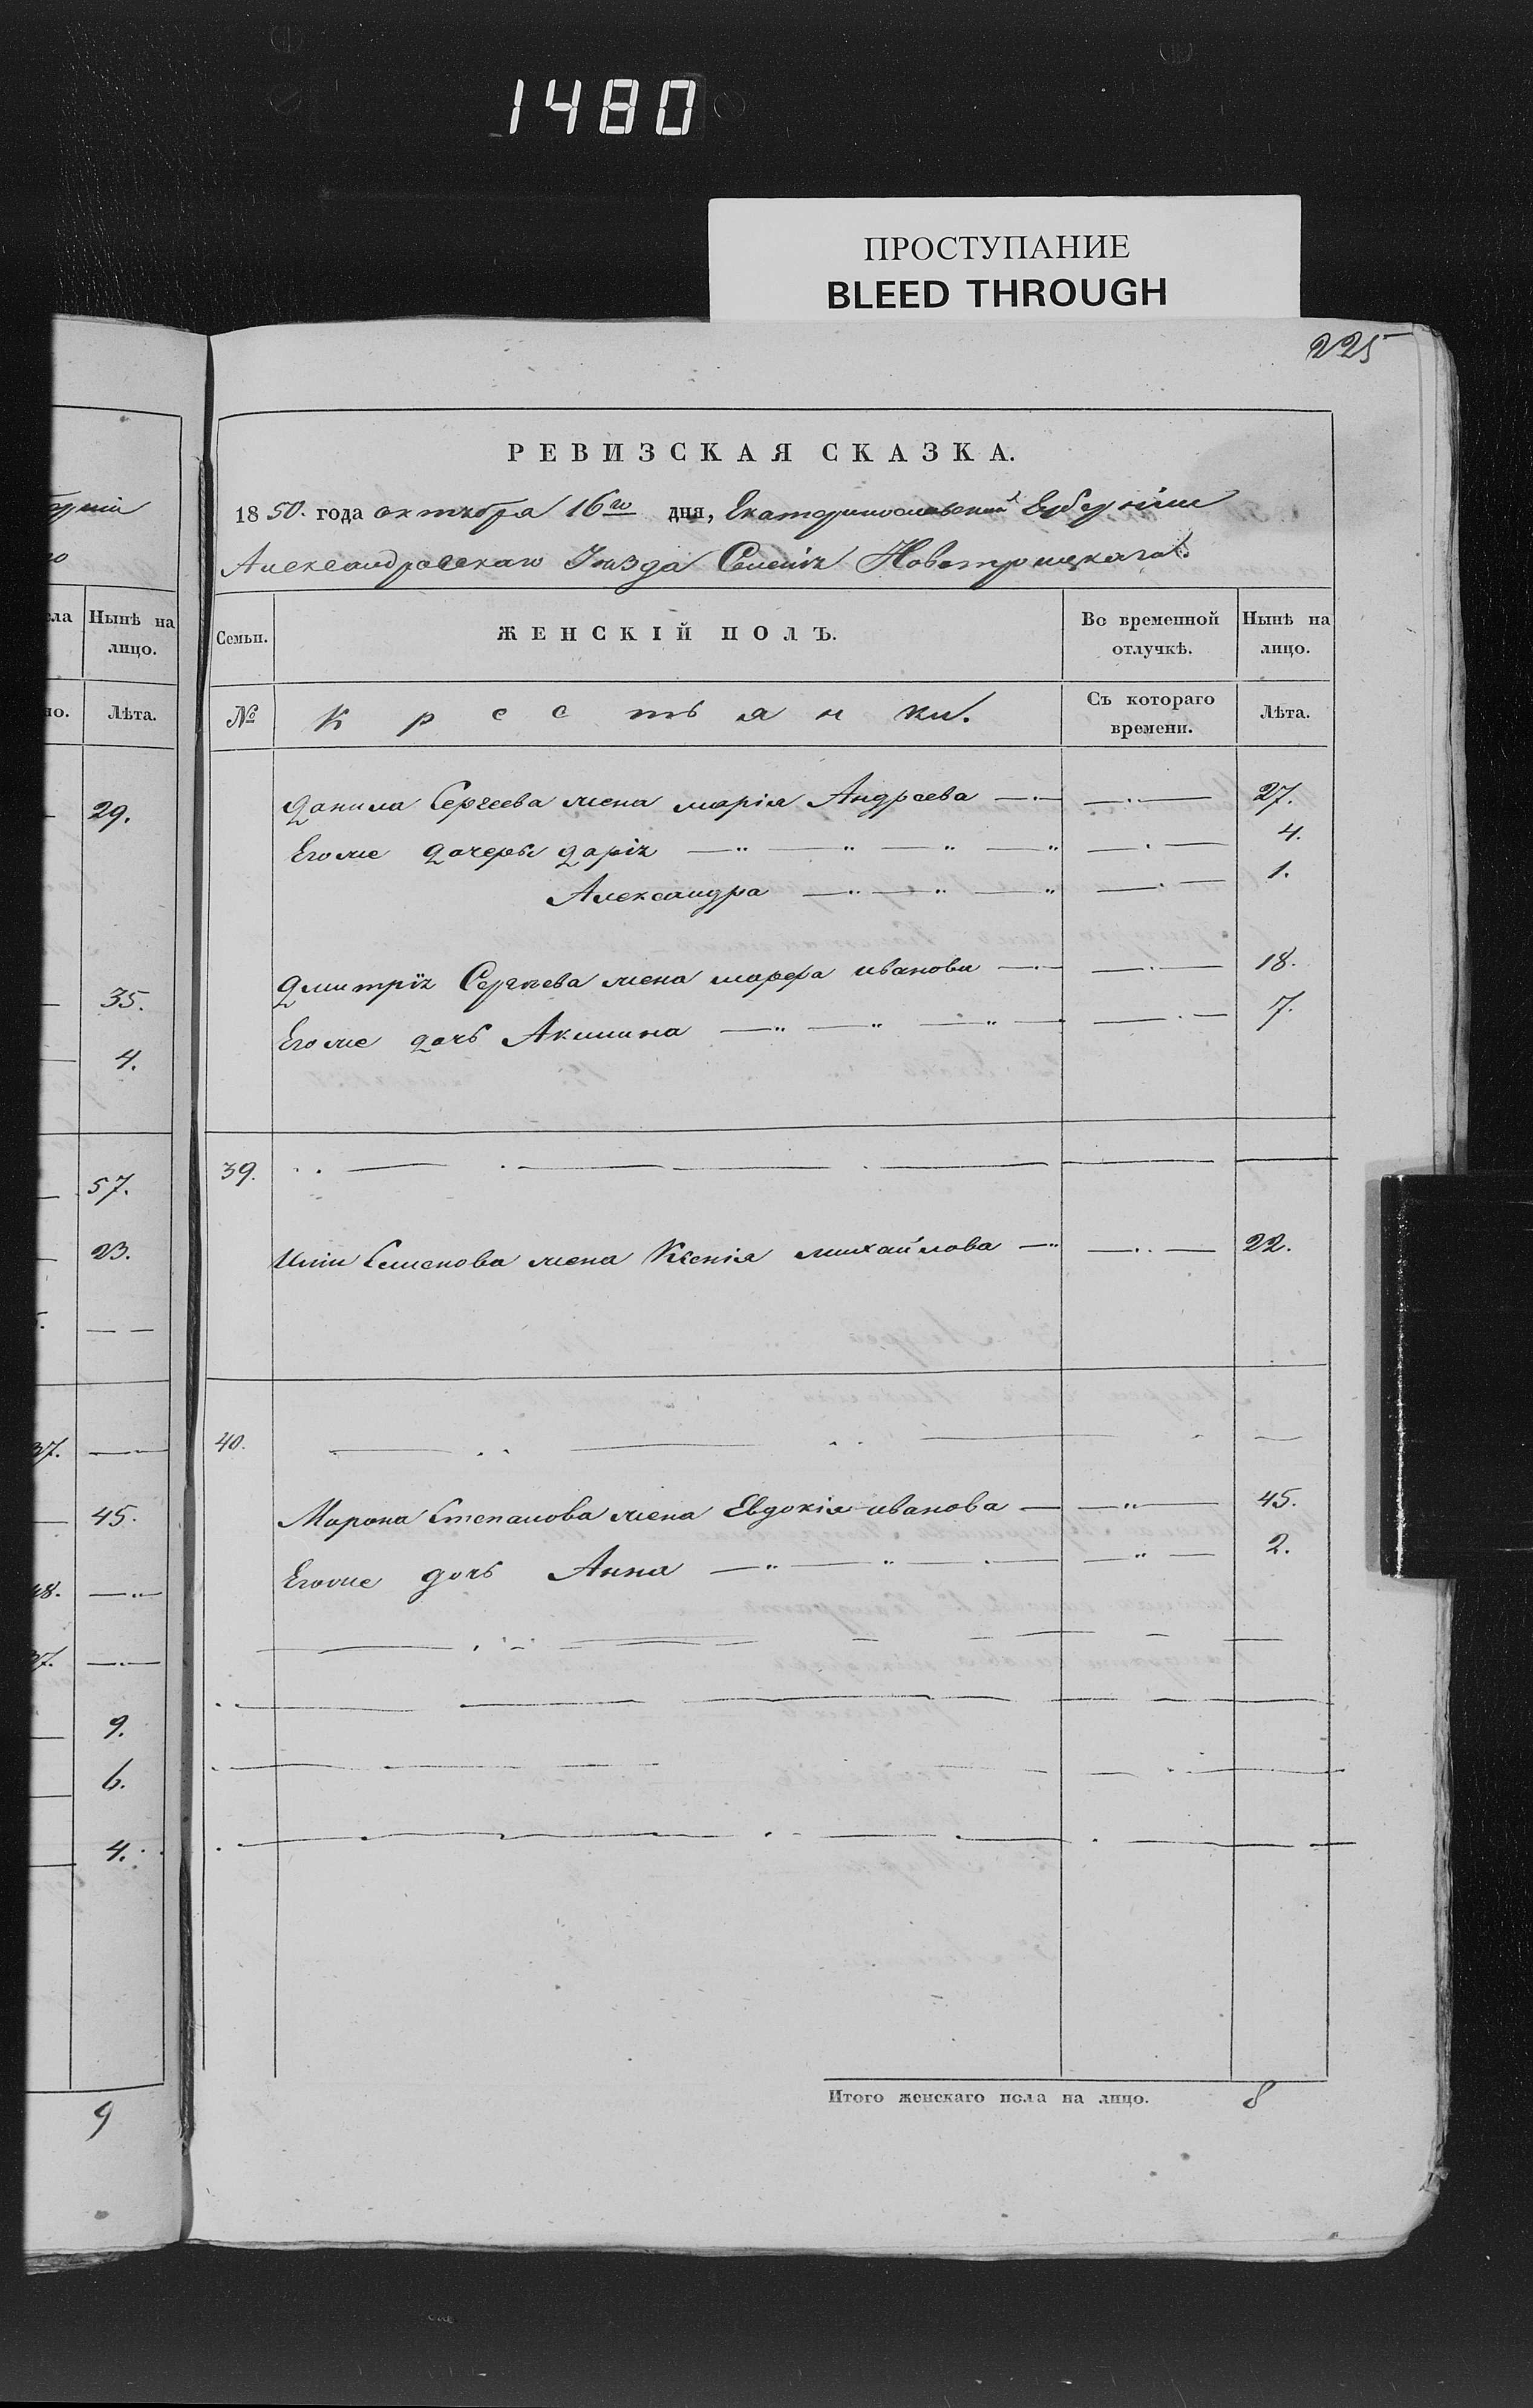 1480
ПРОСТУПАНИЕ
BLEED THROUGH
225
РЕВИЗСКАЯ СКАЗКА.
1850. года октября 16го дня, Екатеринославской Губерніи
Александровскаго Уѣзда Селенія Новотроицкаго.
Нынѣ на лицо.
Лѣта.
29.
35.
4.
57.
23.
37.
45.
48.
37.
9.
6.
4.
9
Семьи. ЖЕНСКІЙ ПОЛЪ. Во временной отлучкѣ. Нынѣ на лицо.
№ Крестьянки. Съ котораго времени. Лѣта.
Данила Сергеева жена марія Андреева 27.
Егоже дочеры дарія 4.
Александра 1.
Дмитрія Сергѣева жена марфа иванова 18.
Егоже дочь Акилина 7.
39.
Семенова жена Ксенія михайлова 22.
40.
Мирона Степанова жена Евдокія иванова 45.
Егоже дочь Анна 2.
Итого женскаго пола на лицо. 8